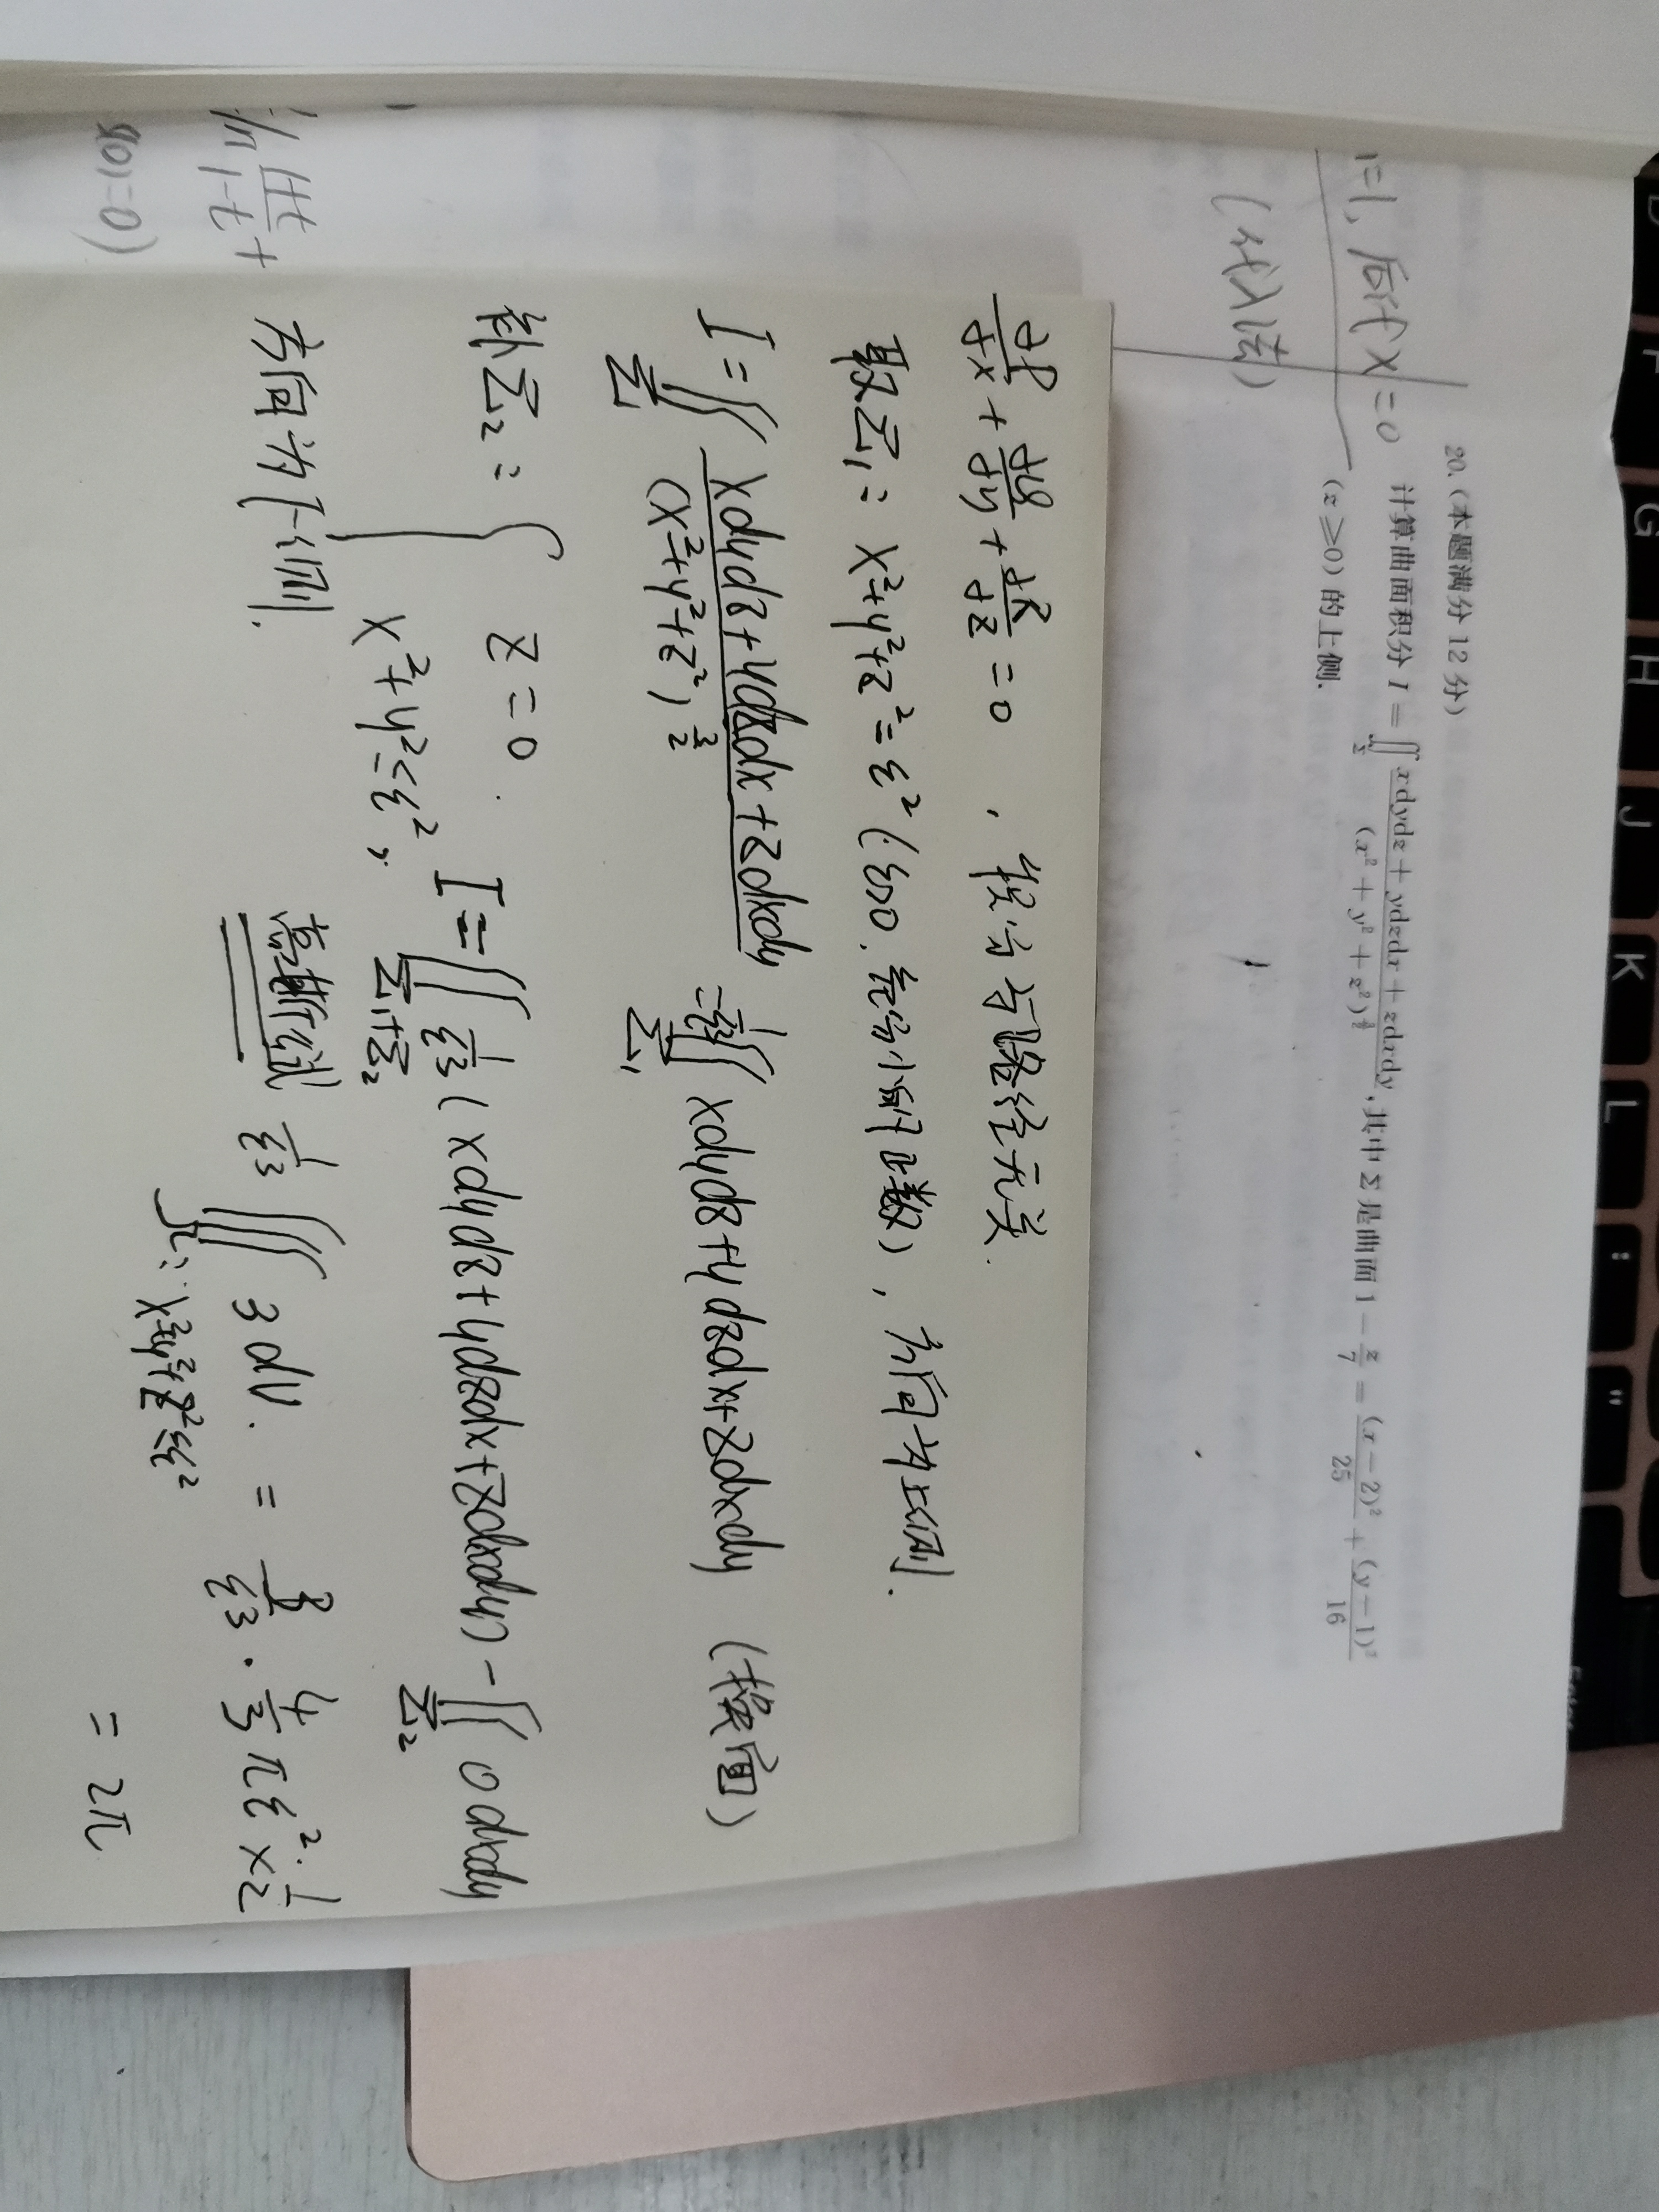 20.(本题满分 12 分)
计算曲面积分 I = ∬_Σ (xdydz + ydzdx + zdxdy)/(x² + y² + z²)^{3/2}, 其中 Σ 是曲面 1 − z/7 = (x − 2)²/25 + (y − 1)²/16
(z ≥ 0) 的上侧.
=1, 后代 x = 0
(代入法)
∂P/∂x + ∂Q/∂y + ∂R/∂z = 0 , 积分与路径无关.
取Σ₁: x²+y²+z² = ε² (ε>0, 充分小的正数), 方向为上侧.
I = ∬_Σ₁ (xdydz+ydzdx+zdxdy)/(x²+y²+z²)^{3/2} = 1/ε³ ∬_Σ₁ xdydz+ydzdx+zdxdy (换面)
补Σ₂: { z = 0 . x²+y² ≤ ε²,
I = ∬_{Σ₁+Σ₂} 1/ε³ (xdydz+ydzdx+zdxdy) − ∬_Σ₂ 0 dxdy
方向为下侧.
高斯公式 1/ε³ ∭_{Ω: x²+y²+z²≤ε²} 3dV. = 3/ε³ · 4/3 πε² · × 1/2
= 2π
ln (1+t)/(1−t) +
g(0)=0)
D
F
G
H
J
K
L
:
"
Enter